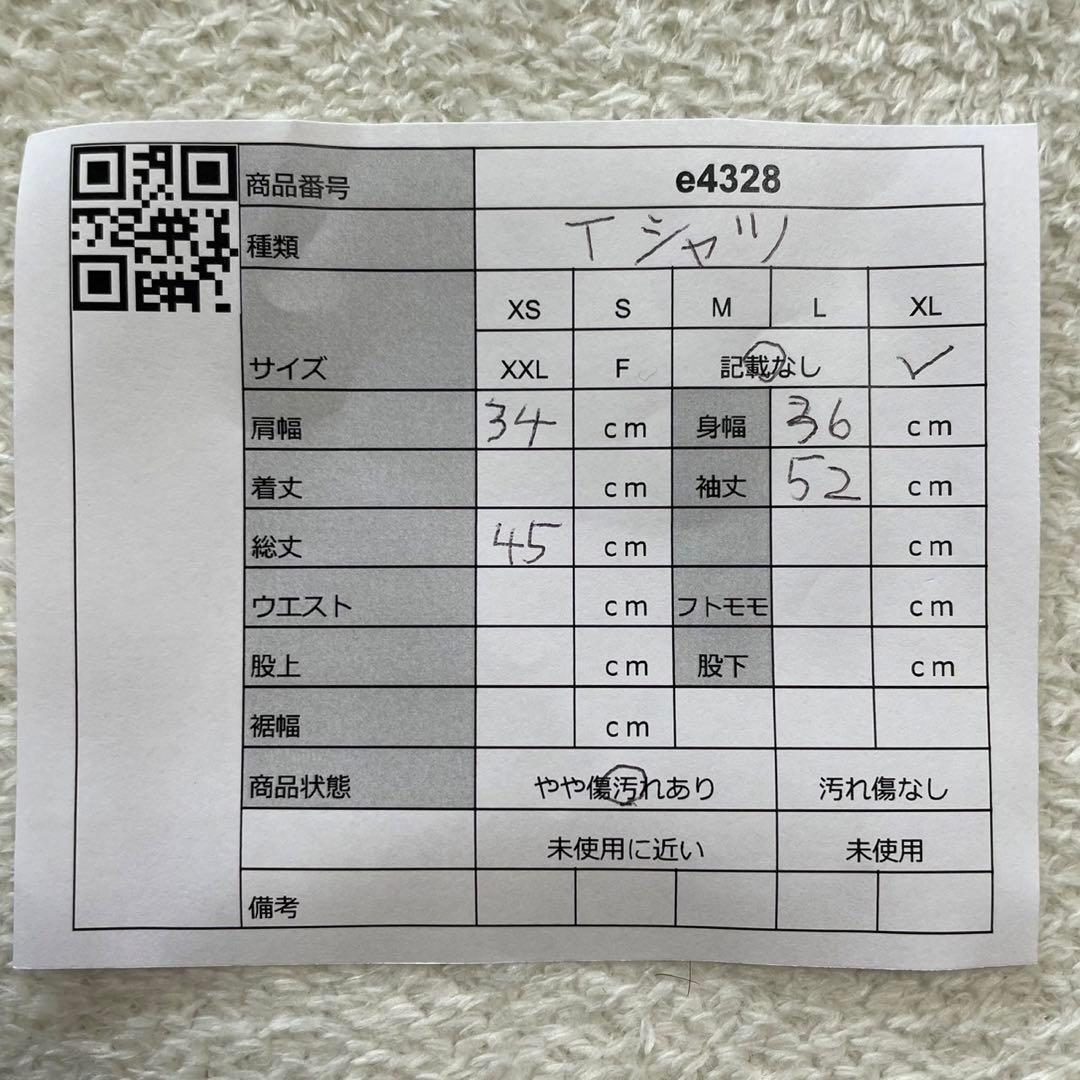 商品番号 e4328
種類 Tシャツ
XS S M L XL
サイズ XXL F 記載なし ✓
肩幅 34 cm 身幅 36 cm
着丈 cm 袖丈 52 cm
総丈 45 cm cm
ウエスト cm フトモモ cm
股上 cm 股下 cm
裾幅 cm
商品状態 やや傷汚れあり 汚れ傷なし
未使用に近い 未使用
備考